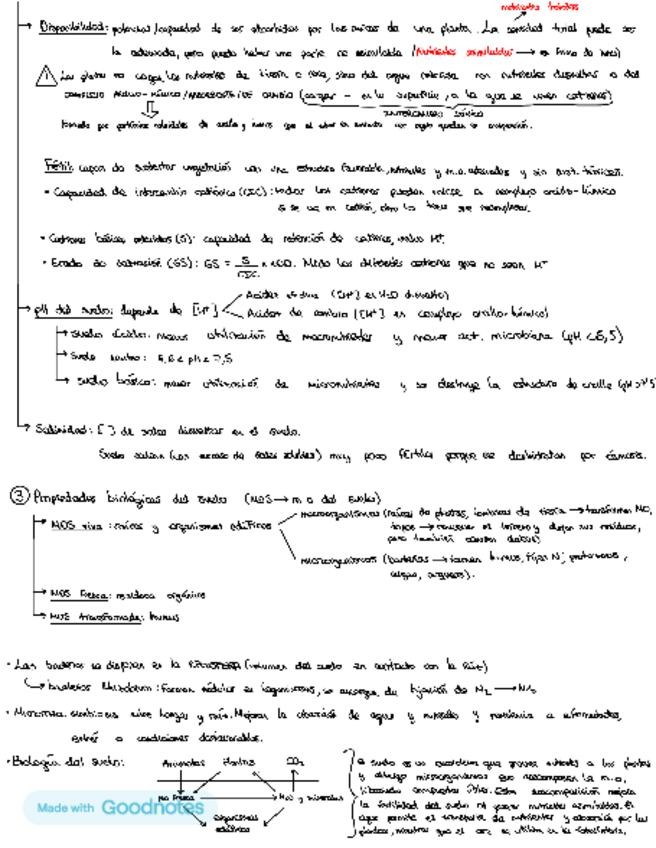 nutrientes totales
Disponibilidad: potencial/capacidad de ser absorbidos por las raíces de una planta. La cantidad total puede ser
la adecuada, pero puede haber una parte no asimilable (nutrientes asimilables → en forma de iones)
Las plantas no cogen los nutrientes de o roca, sino del agua con nutrientes disueltos o del
complejo arcillo-húmico / de cambio (cargas - en la superficie, a la que se unen cationes)
intercambio iónico
formado por partículas coloidales de arcilla y humus que al estar en
Fértil: capaz de sustentar vegetación con una estructura favorable, nutrientes y m.o. adecuados y sin sust. tóxicas.
• Capacidad de intercambio catiónico (CIC): todos los cationes pueden unirse a complejo arcillo-húmico
si se va un catión, otro lo tiene que reemplazar.
• Cationes básicos retenidos (S): capacidad de retención de cationes, salvo H⁺.
• Grado de saturación (GS): GS = S/CIC x 100. Mide los diferentes cationes que no sean H⁺
pH del suelo: depende de [H⁺]
Acidez activa ([H⁺] en H₂O disuelto)
Acidez de cambio ([H⁺] en complejo arcillo-húmico)
→ Suelo ácido: menor utilización de macronutrientes y menor act. microbiana (pH < 6,5)
→ Suelo neutro: 6,6 < pH < 7,5
→ Suelo básico: menor utilización de micronutrientes y se destruye la estructura de arcilla (pH > 7,5
Salinidad: [ ] de sales disueltas en el suelo.
Suelo salino (con exceso de sales solubles) muy poco fértiles porque se deshidratan por ósmosis.
③ Propiedades biológicas del suelo (MOS → m.o del suelo)
→ MOS viva: raíces y organismos edáficos
macroorganismos (raíces de plantas, lombrices de tierra → transforman MO,
topos → remueven el terreno y dejan sus residuos,
pero también causan daños)
microorganismos (bacterias → forman humus, fijan N; protozoos,
algas, hongos).
→ MOS fresca: residuos orgánicos
→ MOS transformada: humus
• Las bacterias se disponen en la RIZOSFERA (volumen del suelo en contacto con la raíz)
→ bacterias Rhizobium: forman nódulos en leguminosas, se encargan de fijación de N₂ → NH₃
• Micorriza: simbiosis entre hongos y raíz. Mejoran la obtención de agua y minerales y resistencia a enfermedades,
estrés o condiciones desfavorables.
• Biología del suelo:
Animales Plantas CO₂
MO fresca
H₂O y minerales
organismos
edáficos
El suelo es un que provee nutrientes a las plantas
y alberga microorganismos que descomponen la m.o,
liberando compuestos útiles. Esta descomposición mejora
la fertilidad del suelo al generar nutrientes asimilables. El
agua permite el transporte de nutrientes y absorción por las
plantas, mientras que el se utiliza en la fotosíntesis.
Made with Goodnotes